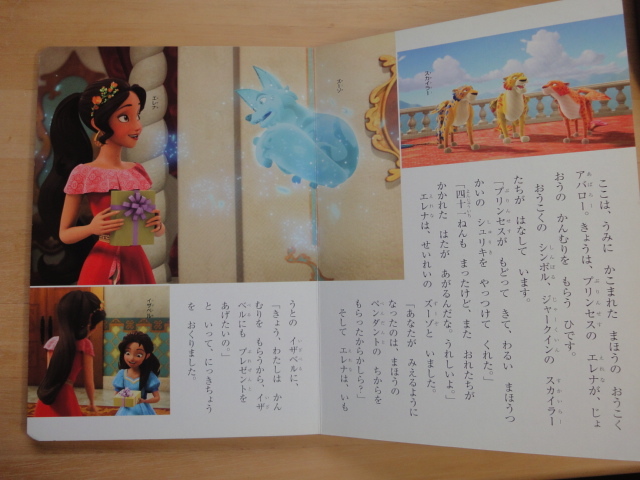 ここは、うみに かこまれた まほうの おうこく
アバロー。きょうは、プリンセスの エレナが、じょ
おうの かんむりを もらう ひです。
おうこくの シンボル、ジャークインの スカイラー
たちが はなして います。
「プリンセスが もどって きて、わるい まほうつ
かいの シュリキを やっつけて くれた。」
「四十一ねんも まったけど、また おれたちが
かかれた はたが あがるんだな。うれしいよ。」
エレナは、せいれいの ズーゾと いました。
「あなたが みえるように
なったのは、まほうの
ペンダントの ちからを
もらったからかしら？」
そして エレナは、いも
うとの イザベルに、
「きょう、わたしは かん
むりを もらうから、イザ
ベルにも プレゼントを
あげたいの。」
と いって、にっきちょう
を おくりました。
スカイラー
ズーゾ
エレナ
イザベル